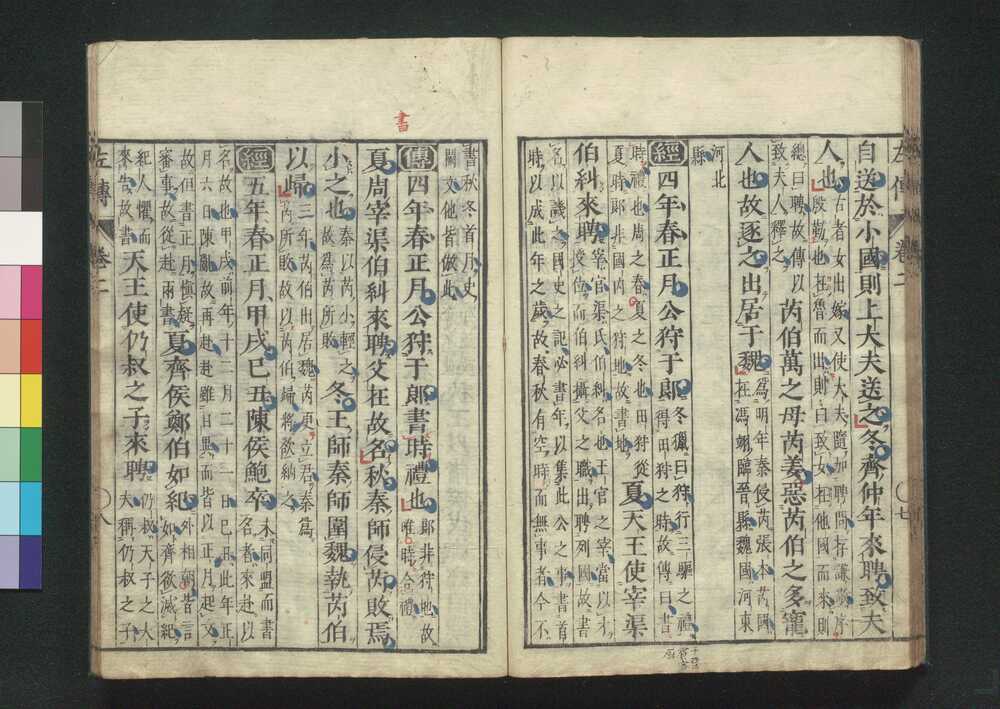 自送於小國則上大夫送之冬齊仲年來聘致夫
人也
古者女出嫁又使大夫隨加聘問存謙敬序
殷勤也在魯而出則曰致女在他國而來則
總曰聘故傳以
致夫人釋之
芮伯萬之母芮姜惡芮伯之多寵
人也故逐之出居于魏
爲明年秦侵芮張本芮國
在馮翊臨晉縣魏國河東
河北
縣
經四年春正月公狩于郎
冬獵曰狩行三驅之禮
得田狩之時故傳曰書
時禮也周之春夏之冬也田狩從
夏時郎非國内之狩地故書地
夏天王使宰渠
伯糾來聘
宰官渠氏伯糾名也王官之宰當以才
授位而伯糾攝父之職出聘列國故書
名以譏之國史之記必書年以集此公之事書首
時以成此年之歲故春秋有空時而無事者今不
左傳 卷二 七
書秋冬首月史
闕文他皆倣此
書
傳四年春正月公狩于郎書時禮也
郎非狩地故
唯時合禮
夏周宰渠伯糾來聘父在故名秋秦師侵芮敗焉
小之也
秦以芮小輕之
故爲芮所敗
冬王師秦師圍魏執芮伯
以歸
三年芮伯出居魏芮更立君秦爲
芮所敗故以芮伯歸將欲納之
經五年春正月甲戌己丑陳侯鮑卒
未同盟而書
名者來赴以
名故也甲戌前年十二月二十一日己丑此年正
月六日陳亂故再赴赴雖日異而皆以正月起文
故但書正月愼疑
審事故從赴兩書
夏齊侯鄭伯如紀
外相朝皆言
如齊欲滅紀
紀人懼而
來告故書
天王使仍叔之子來聘
仍叔天子之大
夫稱仍叔之子
左傳 卷二 八